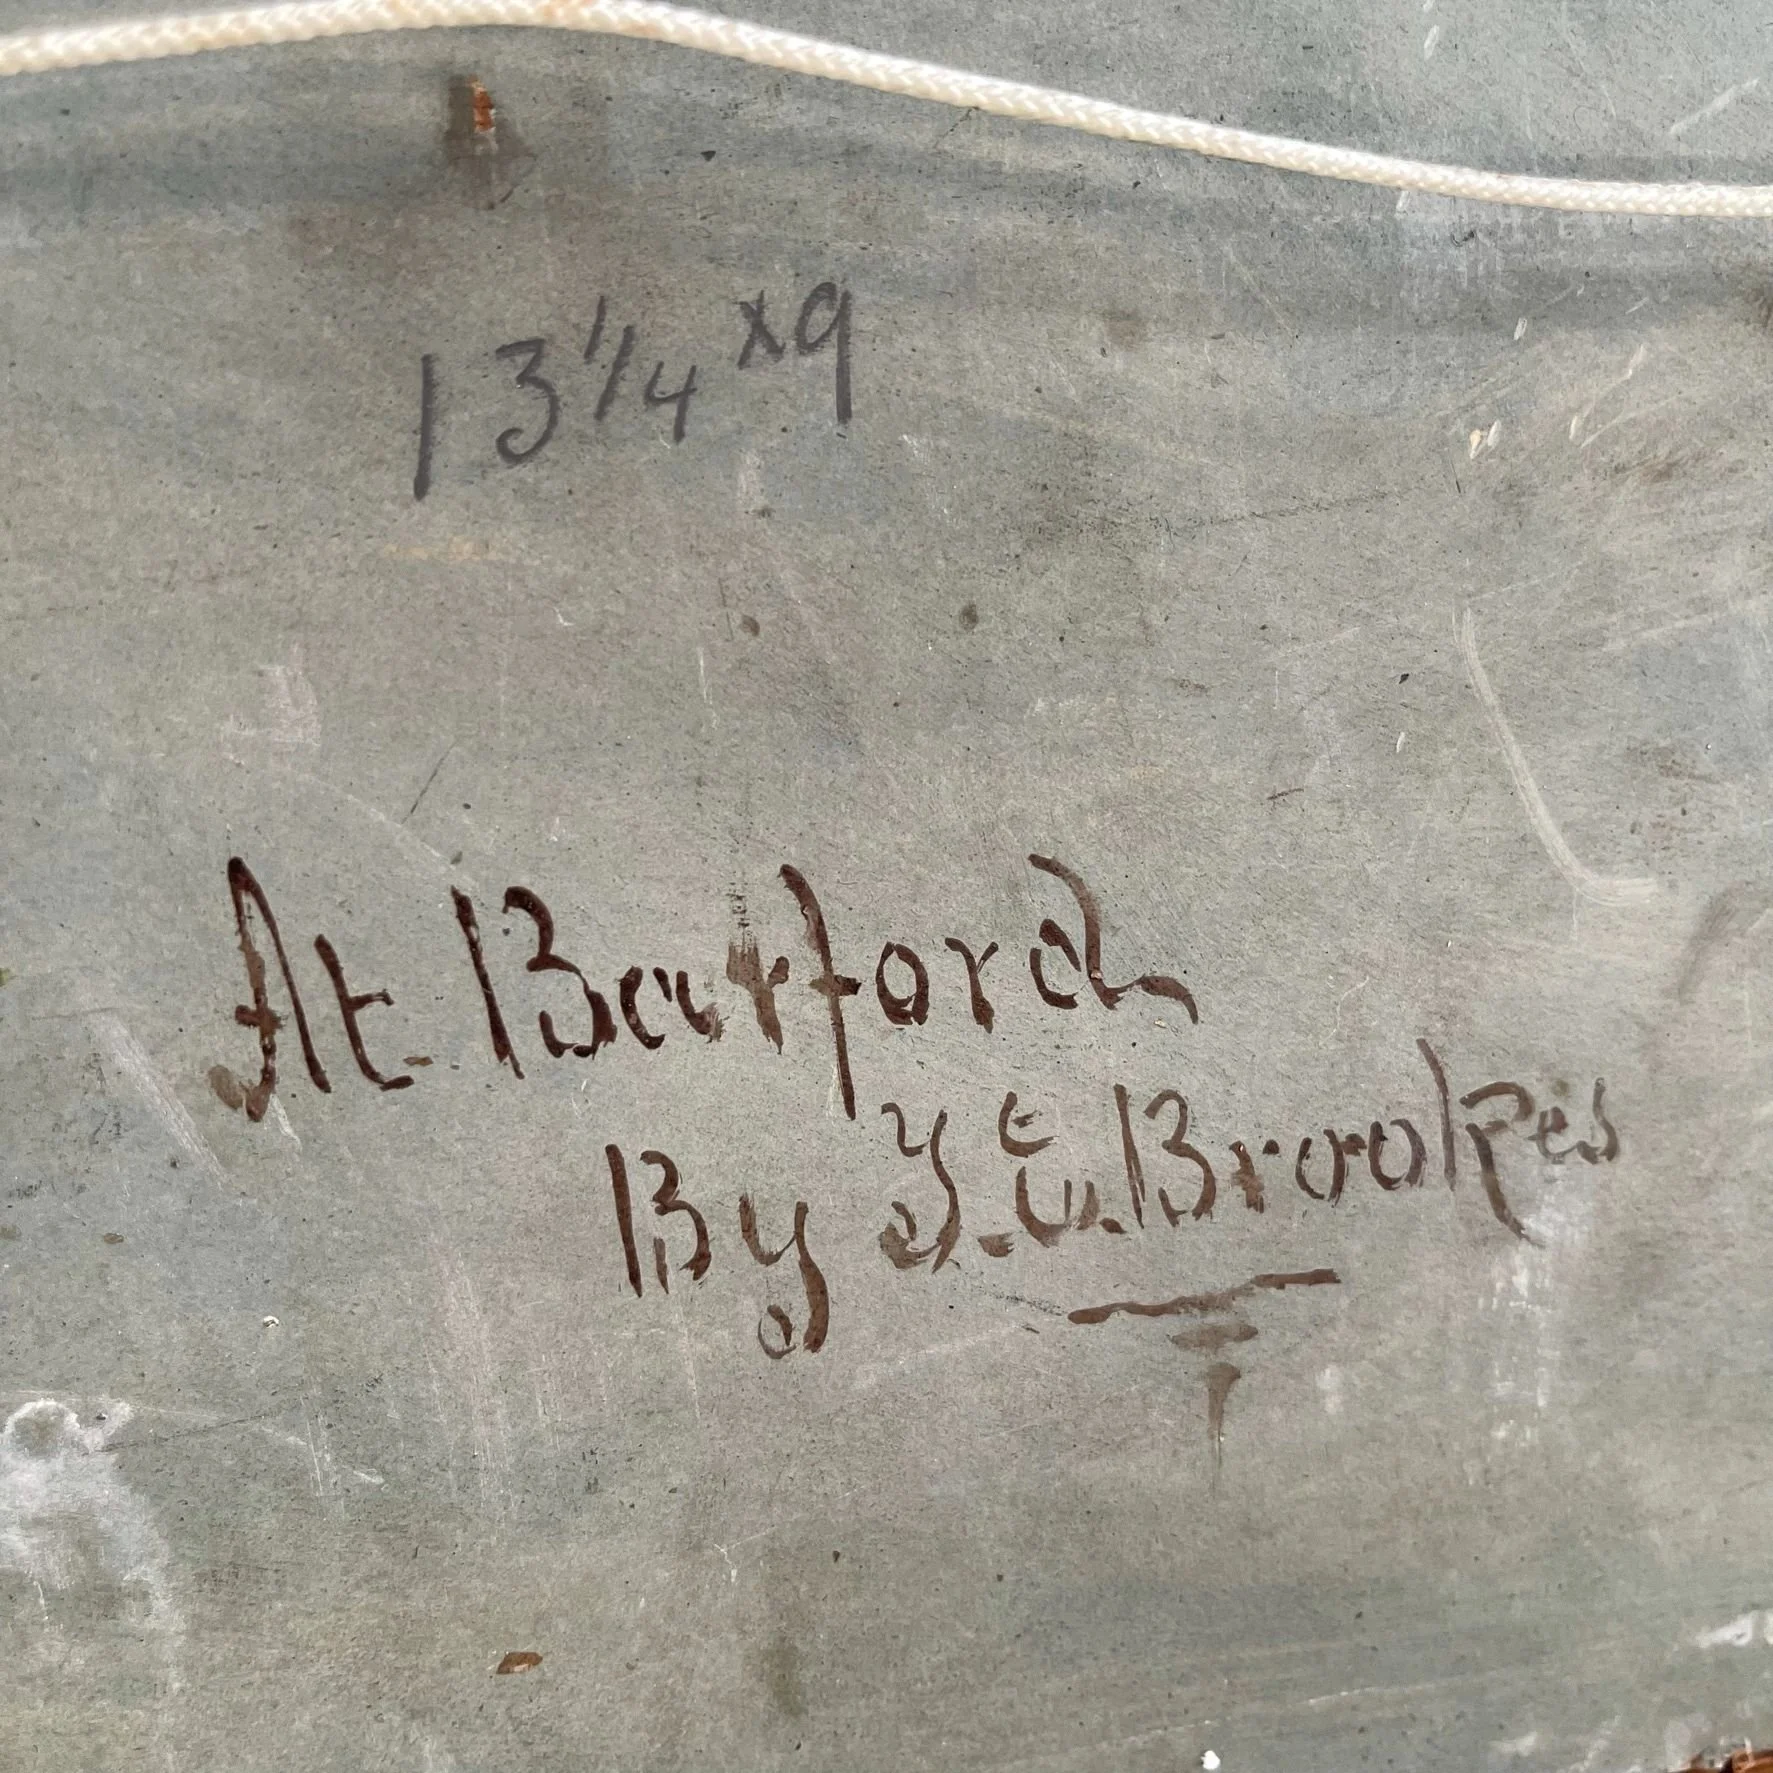 13 1/4 x 9
At. Barford
By J. E. Brookes